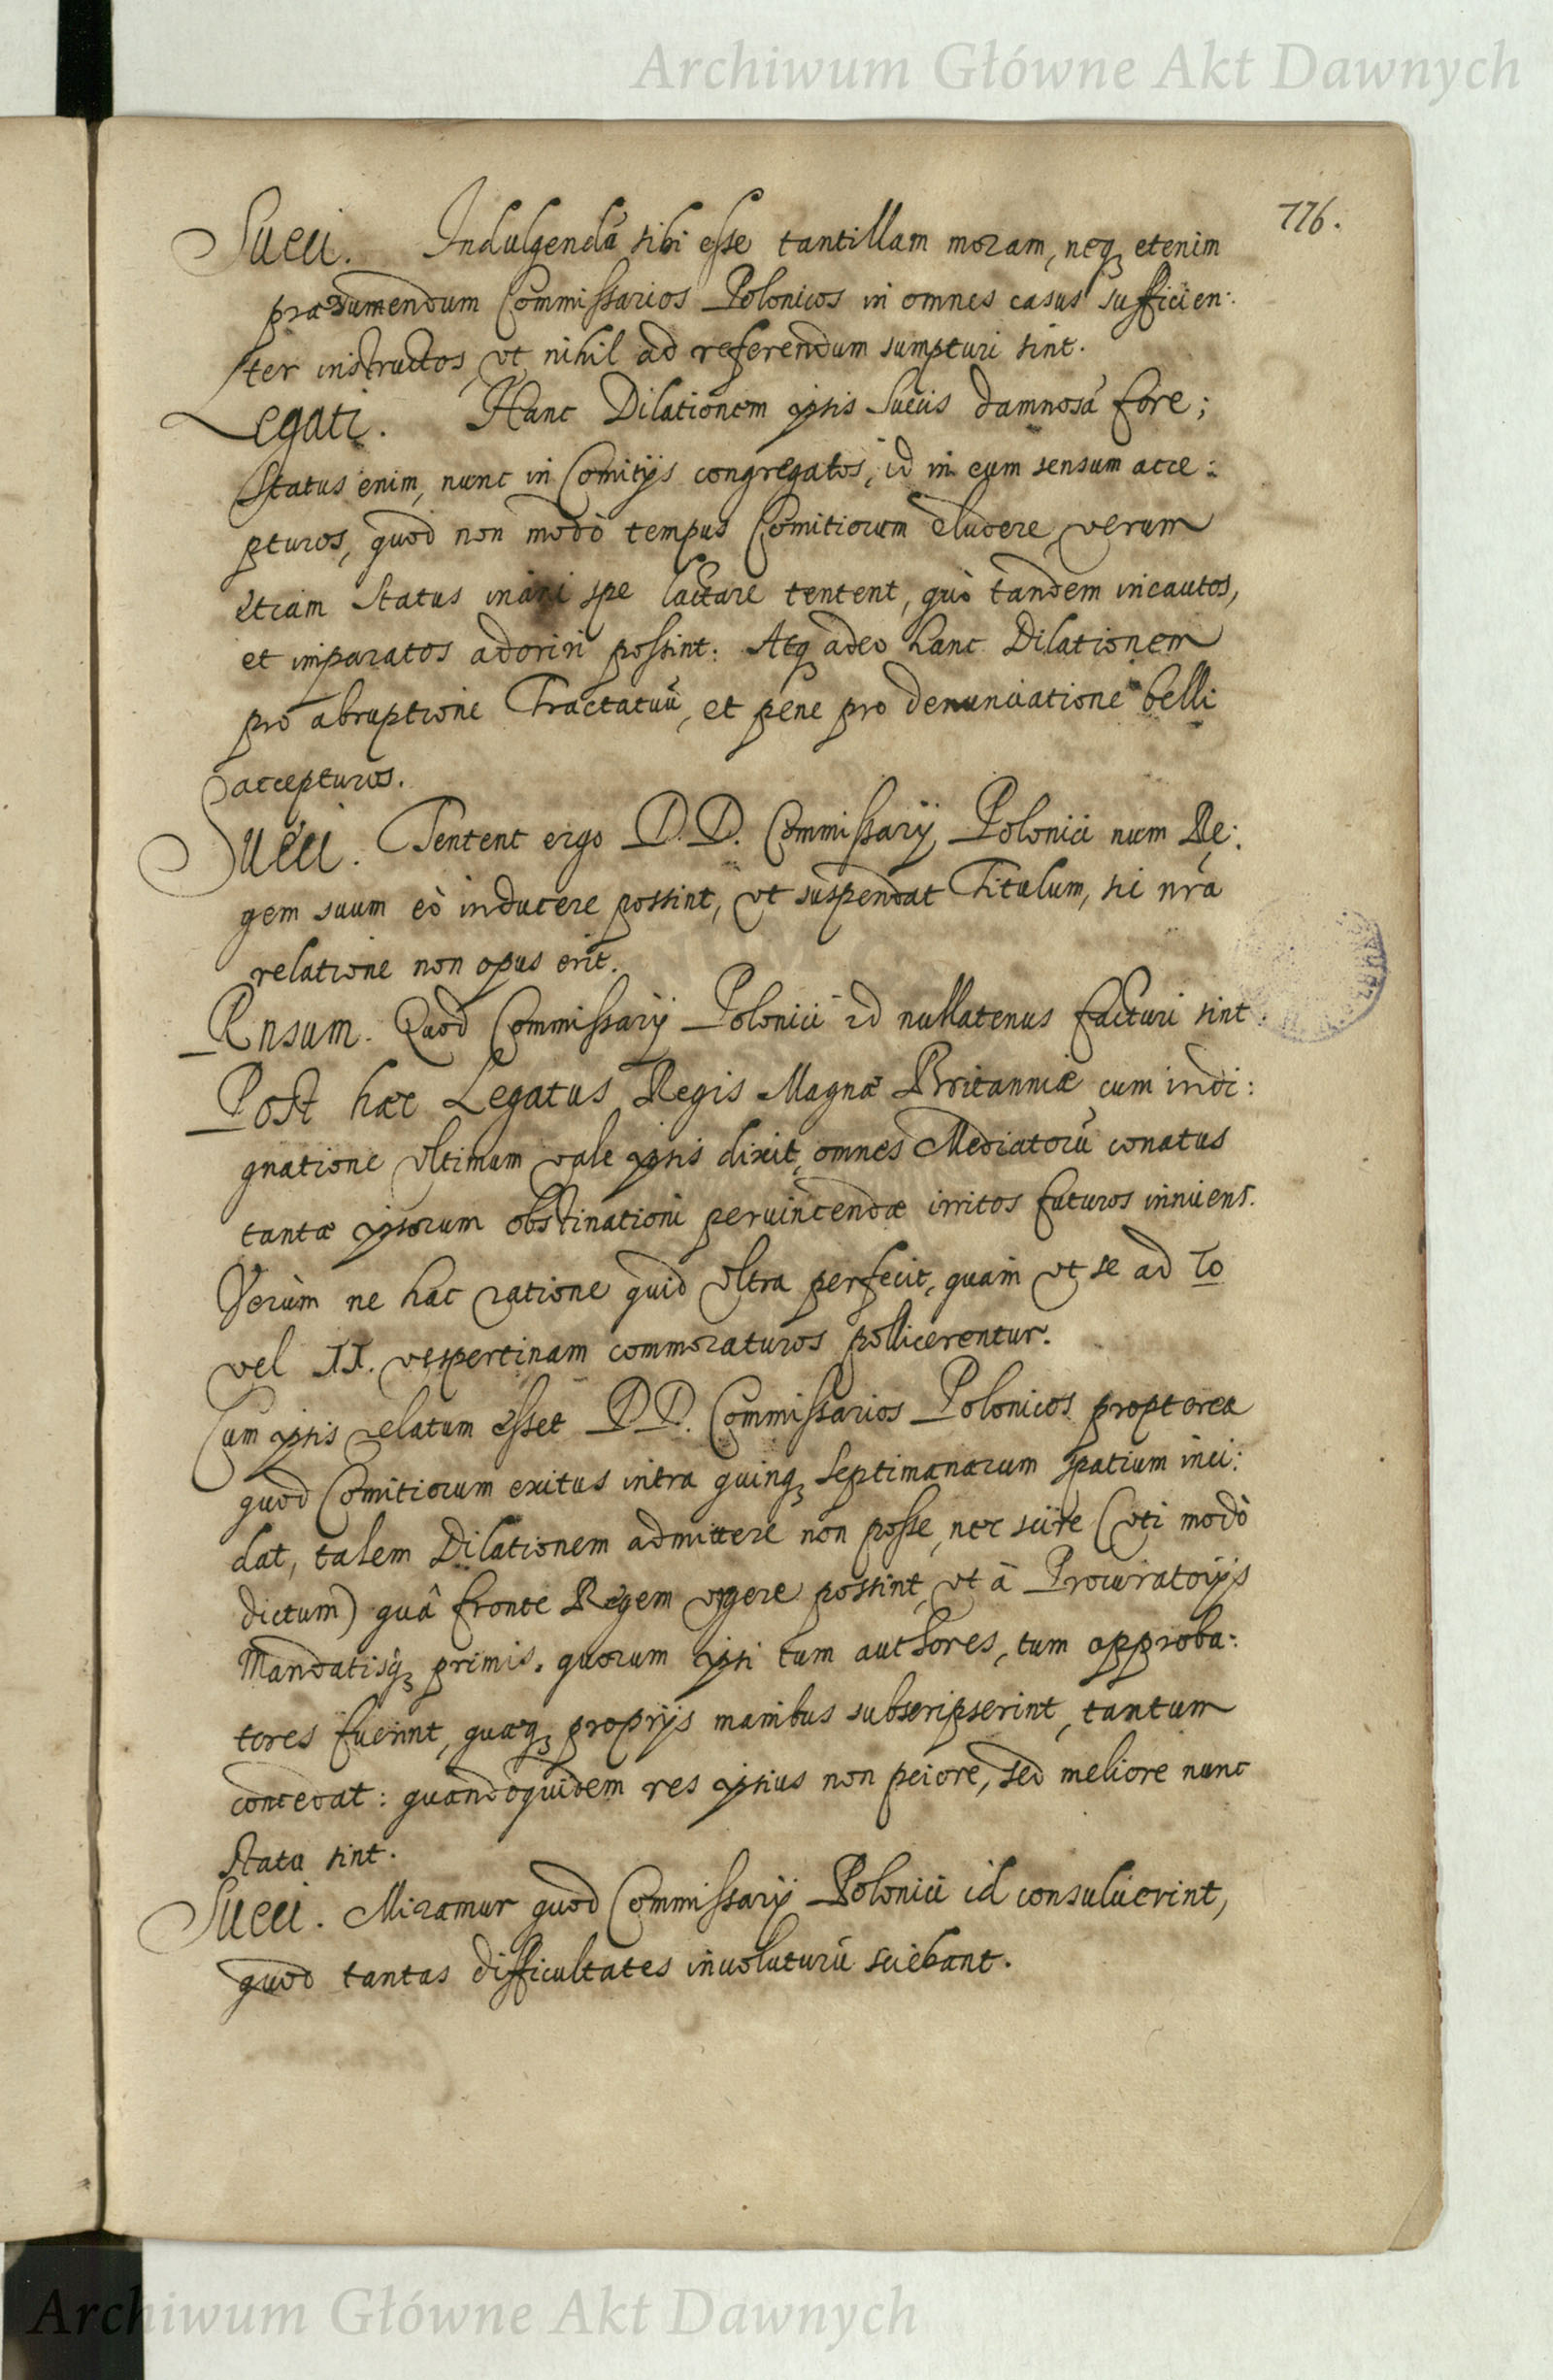 Archiwum Główne Akt Dawnych
776.
Sueci. Indulgendā sibi esse tantillam moram, neqȝ etenim
præsumendum Commissarios Polonicos in omnes casus sufficien:
ter instructos, vt nihil ad referendum sumpturi sint.
Legati. Hanc Dilationem ipsis Suecis damnosā fore;
Status enim, nunc in Comitijs congregatos, id in eum sensum acce:
pturos, quod non modò tempus Comitiorum eludere, verum
etiam Status inani spe lactare tentent, quò tandem incautos,
et imparatos adoriri possint. Atq adeo hanc Dilationem
pro abruptione Tractatuū, et pene pro denunciatione belli
accepturos.
Sueci. Tentent ergo D.D. Commissarij Polonici num Re:
gem suum eò inducere possint, vt suspendat Titulum, si nrā
relatione non opus erit.
Rnsum. Quod Commissarij Polonici id nullatenus facturi sint.
Post hæc Legatus Regis Magnæ Britanniæ cum indi:
gnatione vltimum vale ipsis dixit, omnes Mediatorū conatus
tantæ ipsorum obstinationi peruincendæ irritos futuros innuens.
Verùm ne hac ratione quid vltra perfecit, quam vt se ad 10
vel 11. vespertinam commoraturos pollicerentur.
Cum ipsis relatum esset DD. Commissarios Polonicos propterea
quod Comitiorum exitus intra quinqȝ Septimanarum spatium inci:
dat, talem Dilationem admittere non posse, nec scire (vti modò
dictum) quâ fronte Regem vrgere possint, vt à Procuratorijs
Mandatisqȝ primis, quorum ipsi tum authores, tum approba:
tores fuerint, quæqȝ proprijs manibus subscripserint, tantum
concedat: quandoquidem res ipsius non peiore, sed meliore nunc
statu sint.
Sueci. Miramur quod Commissarij Polonici id consuluerint,
quod tantas difficultates inuoluturū sciebant.
Archiwum Główne Akt Dawnych